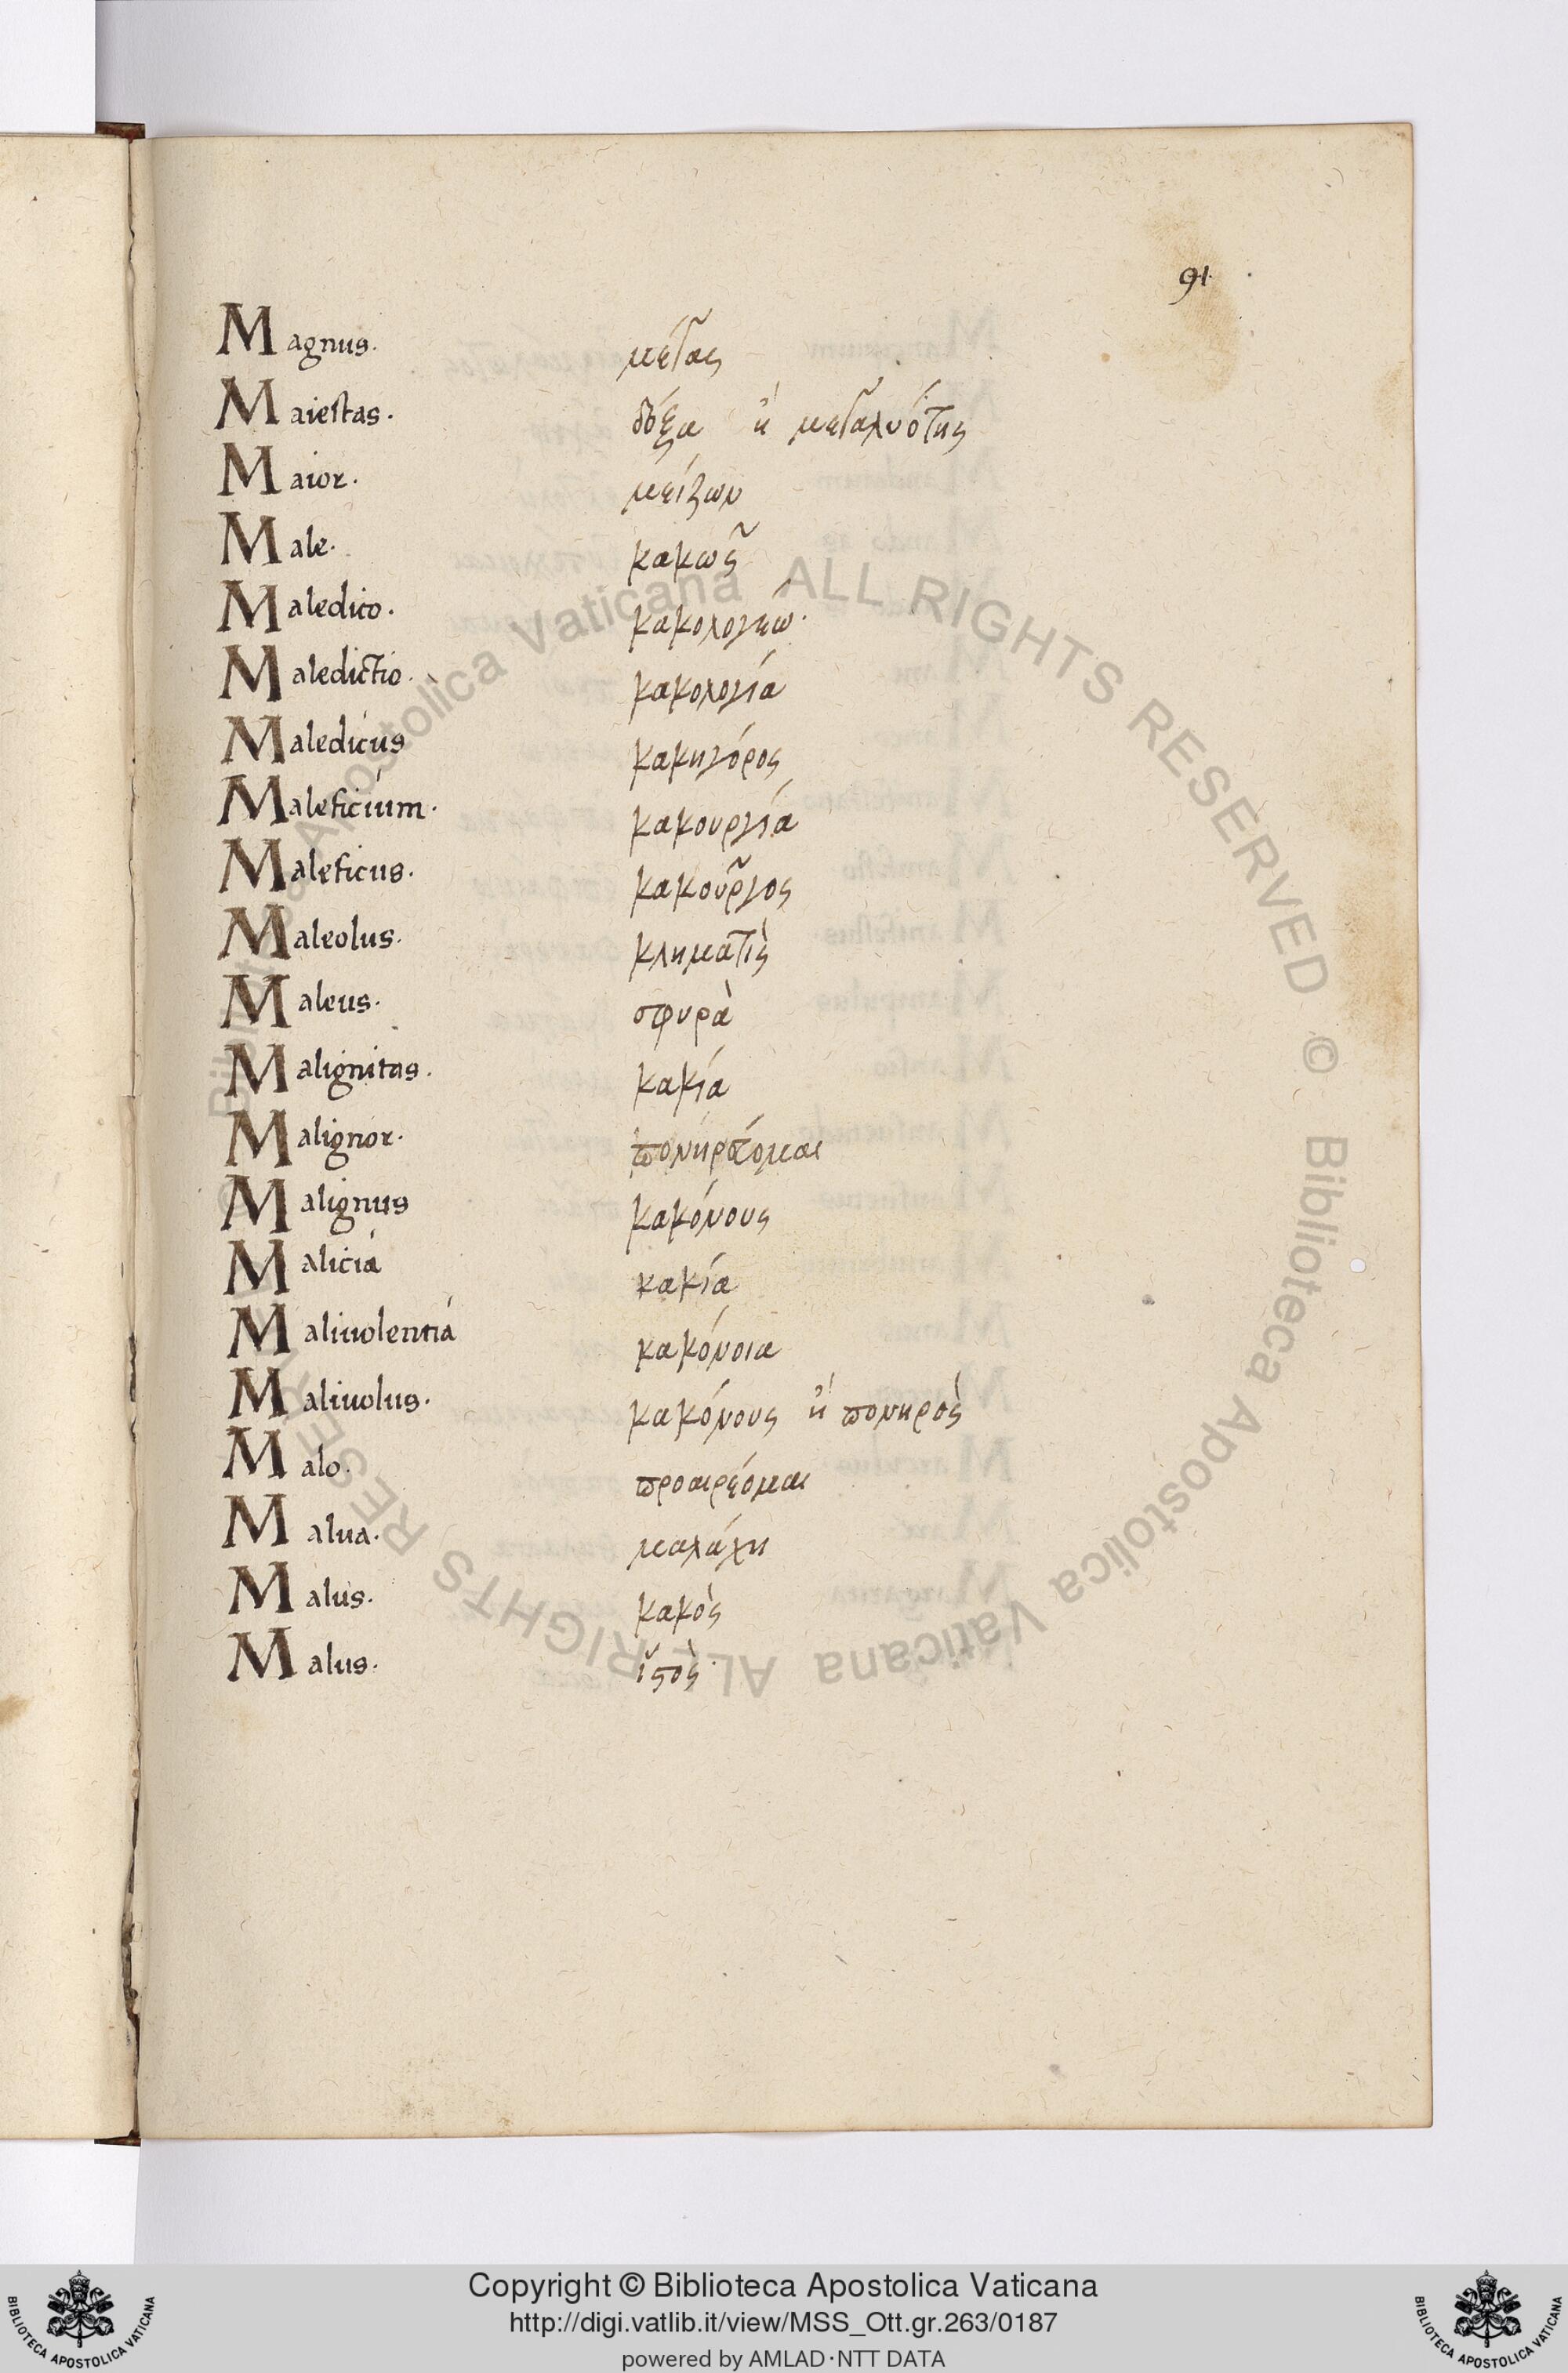 91.
Magnus. μέγας
Maiestas. δόξα ἤ μεγαλυότης
Maior. μείζων
Male. κακῶς
Maledico. κακολογέω.
Maledictio. κακολογία
Maledicus κακηγόρος
Maleficium. κακουργία
Maleficus. κακοῦργος
Maleolus. κληματὶς
Maleus. σφυρὰ
Malignitas. κακία
Malignor. πονηρεύομαι
Malignus κακόνους
Malicia κακία
Maliuolentia κακόνοια
Maliuolus. κακόνους ἤ πονηρὸς
Malo. προαιρέομαι
Malua. μαλάχη
Malus. κακὸς
Malus. ἱστὸς.
© Biblioteca Apostolica Vaticana ALL RIGHTS RESERVED © Biblioteca Apostolica Vaticana ALL RIGHTS RESERVED
Copyright © Biblioteca Apostolica Vaticana
http://digi.vatlib.it/view/MSS_Ott.gr.263/0187
powered by AMLAD·NTT DATA
BIBLIOTECA APOSTOLICA VATICANA
BIBLIOTECA APOSTOLICA VATICANA